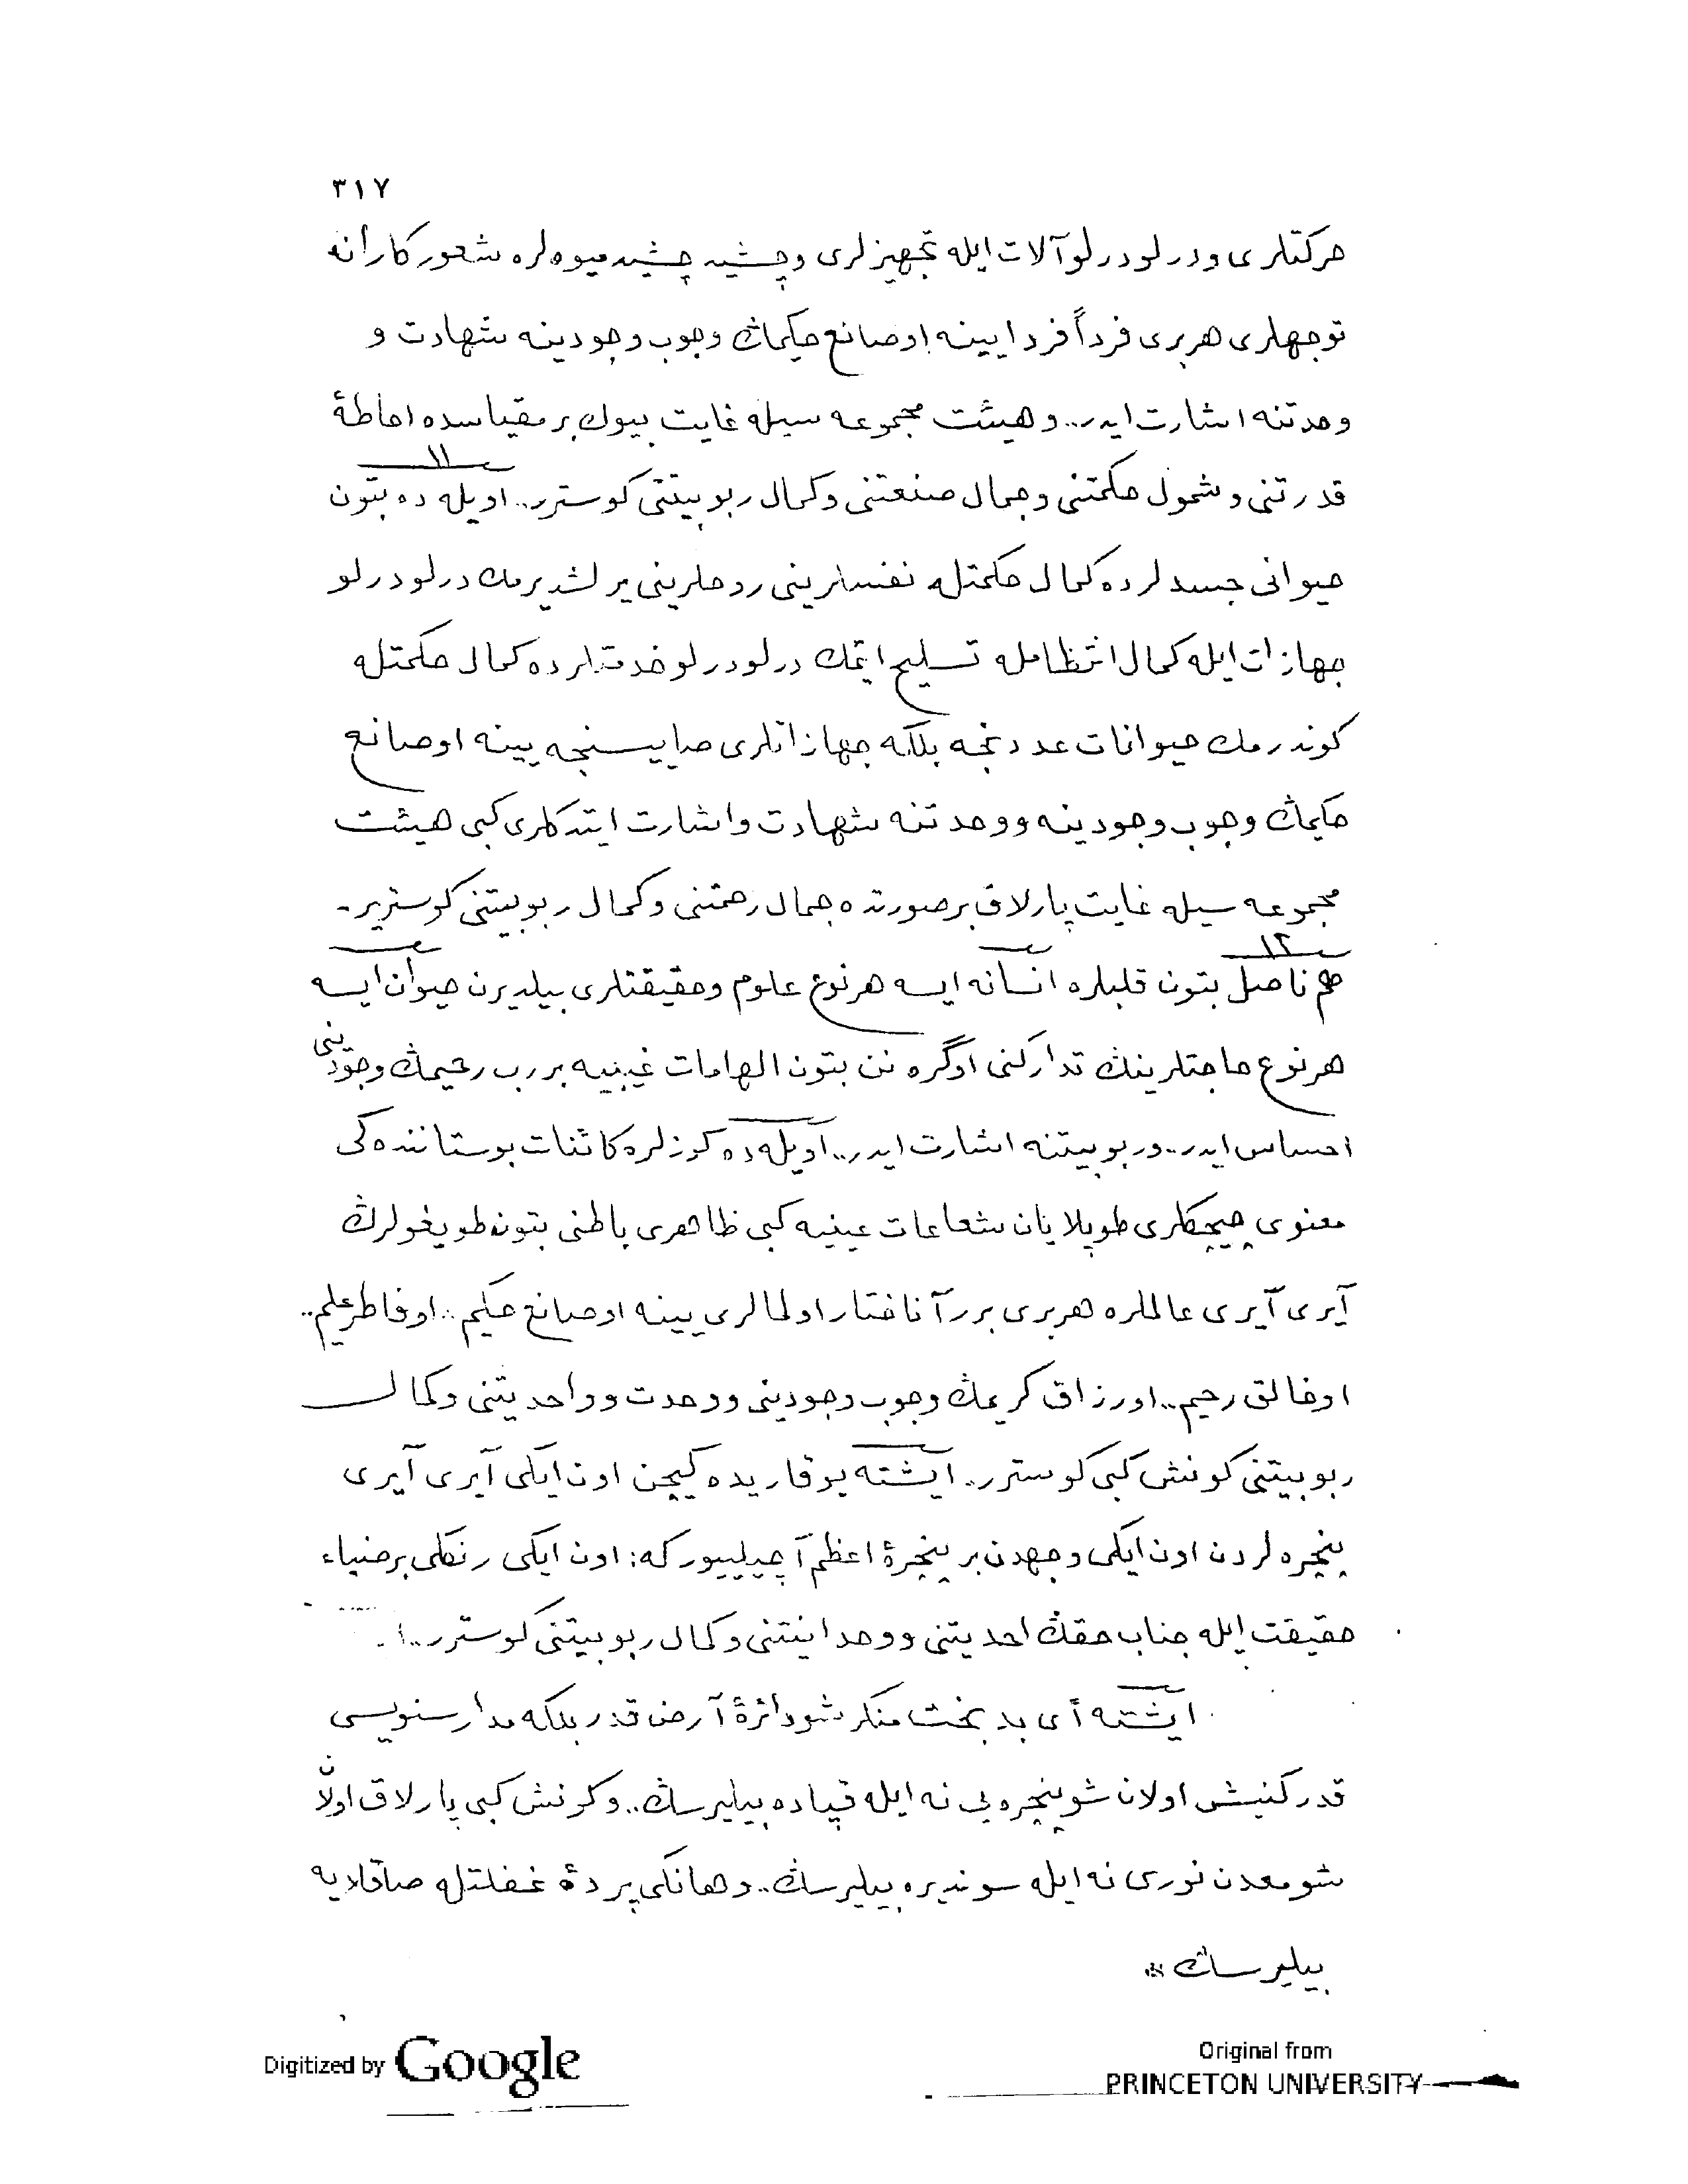 ٣١٧
حركتلرى ودرلو درلو آلات ايله تجهيزلرى وچشيد چشيد ميوه لره شعوركارانه
توجهلرى هربرى فرداً فردا يينه او صانع حكيمڭ وجوب وجودينه شهادت و
وحدتنه اشارت ايدر.. و هيئت مجموعه سيله غايت بيوك بر مقياسده احاطۀ
١١
قدرتنى و شمول حكمتنى وجمال صنعتنى وكمال ربوبيتنى كوسترر.. اويله ده بتون
حيوانى جسدلرده كمال حكمتله نفسلرينى روحلرينى يرلشديرمك درلو درلو
جهازات ايله كمال انتظامله تسليح ايتمك درلو درلو خدمتلرده كمال حكمتله
كوندرمك حيوانات عددنجه بلكه جهازاتلرى صاييسنجه يينه او صانع
حكيمڭ وجوب وجودينه ووحدتنه شهادت واشارت ايتدكلرى كبى هيئت
مجموعه سيله غايت پارلاق بر صورتده جمال رحمتنى وكمال ربوبيتنى كوسترير.
١٢
هم ناصل بتون قلبلره انسانه ايسه هر نوع علوم وحقيقتلرى بيلديرن حيوان ايسه
هر نوع حاجتلرينڭ تداركنى اوگره تن بتون الهامات غيبيه بر رب رحيمڭ وجودينى
احساس ايدر.. وربوبيتنه اشارت ايدر.. اويله ده كوزلره كائنات بوستاننده كى
معنوى چيچكلرى طوپلايان شعاعات عينيه كبى ظاهرى باطنى بتون طويغولرڭ
آيرى آيرى عالملره هربرى برر آناختار اولمالرى يينه او صانع حكيم.. او فاطر عليم..
او خالق رحيم.. او رزاق كريمڭ وجوب وجودينى ووحدت وواحديتنى وكمال
ربوبيتنى كونش كبى كوسترر.. ايشته يوقاريده كيچن اون ايكى آيرى آيرى
پنجره لردن اون ايكى وجهدن بر پنجرۀ اعظم آچيلييور كه: اون ايكى رنكلى بر ضياء
حقيقت ايله جناب حقڭ احديتنى ووحدانيتنى وكمال ربوبيتنى كوسترر..
ايشته أى بدبخت منكر شو دائرۀ آرض قدر بلكه مدار سنويسى
قدر كنيش اولان شو پنجره يى نه ايله قپاده بيليرسڭ.. وكونش كبى پارلاق اولان
شو معدن نورى نه ايله سونديره بيليرسڭ.. وهانكى پردۀ غفلتله صاقلايه
بيليرسڭ
Digitized by Google
Original from
PRINCETON UNIVERSITY